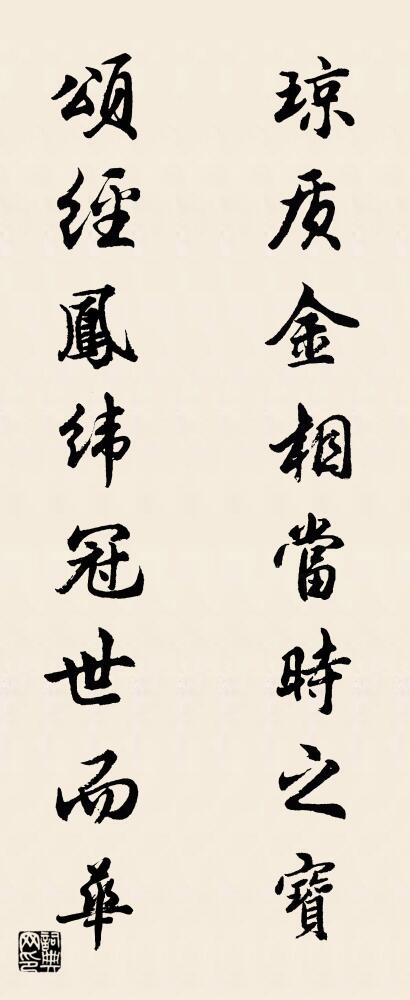 琼质金相當時之寶
頌經鳳緯冠世而華
詞典网印